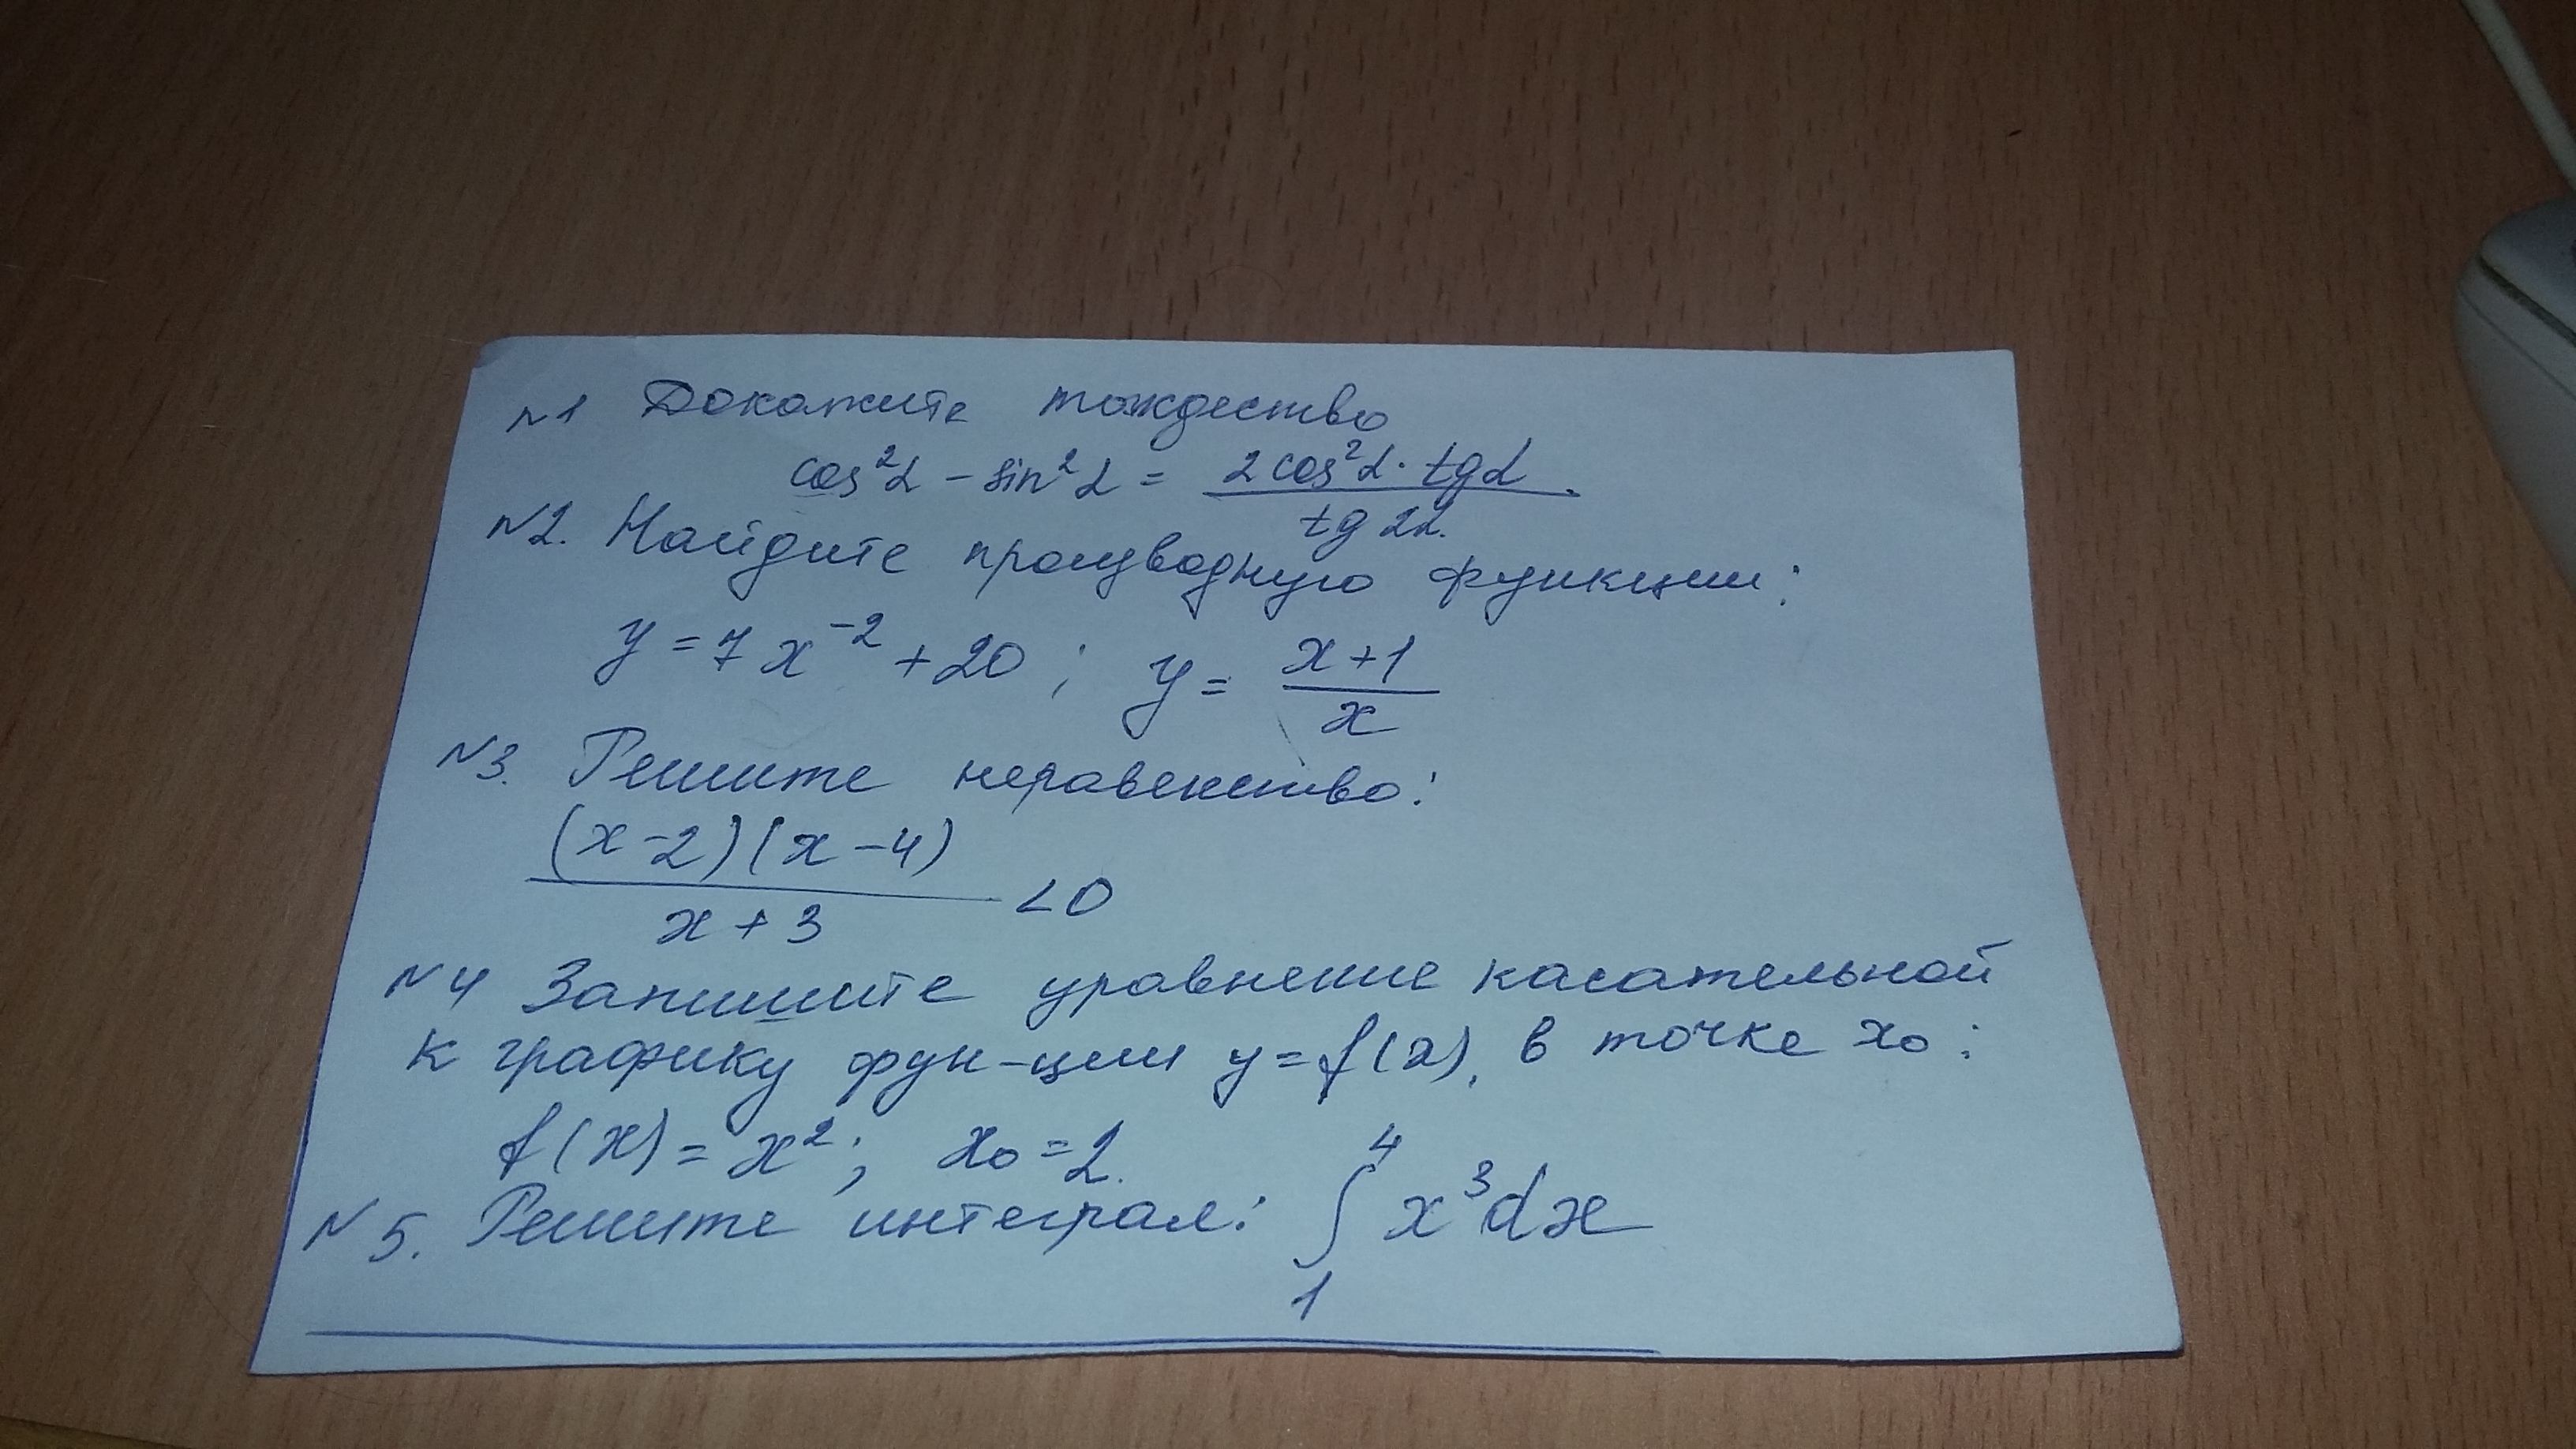 №1 Докажите тождество
cos²α - sin²α = 2cos²α · tgα / tg2α.
№2. Найдите производную функции:
y = 7x⁻² + 20; y = x+1 / x
№3. Решите неравенство:
(x-2)(x-4) / x+3 <0
№4 Запишите уравнение касательной
к графику фун-ции y=f(x), в точке x₀:
f(x) = x²; x₀ = 2.
№5. Решите интеграл: ∫₁⁴ x³dx